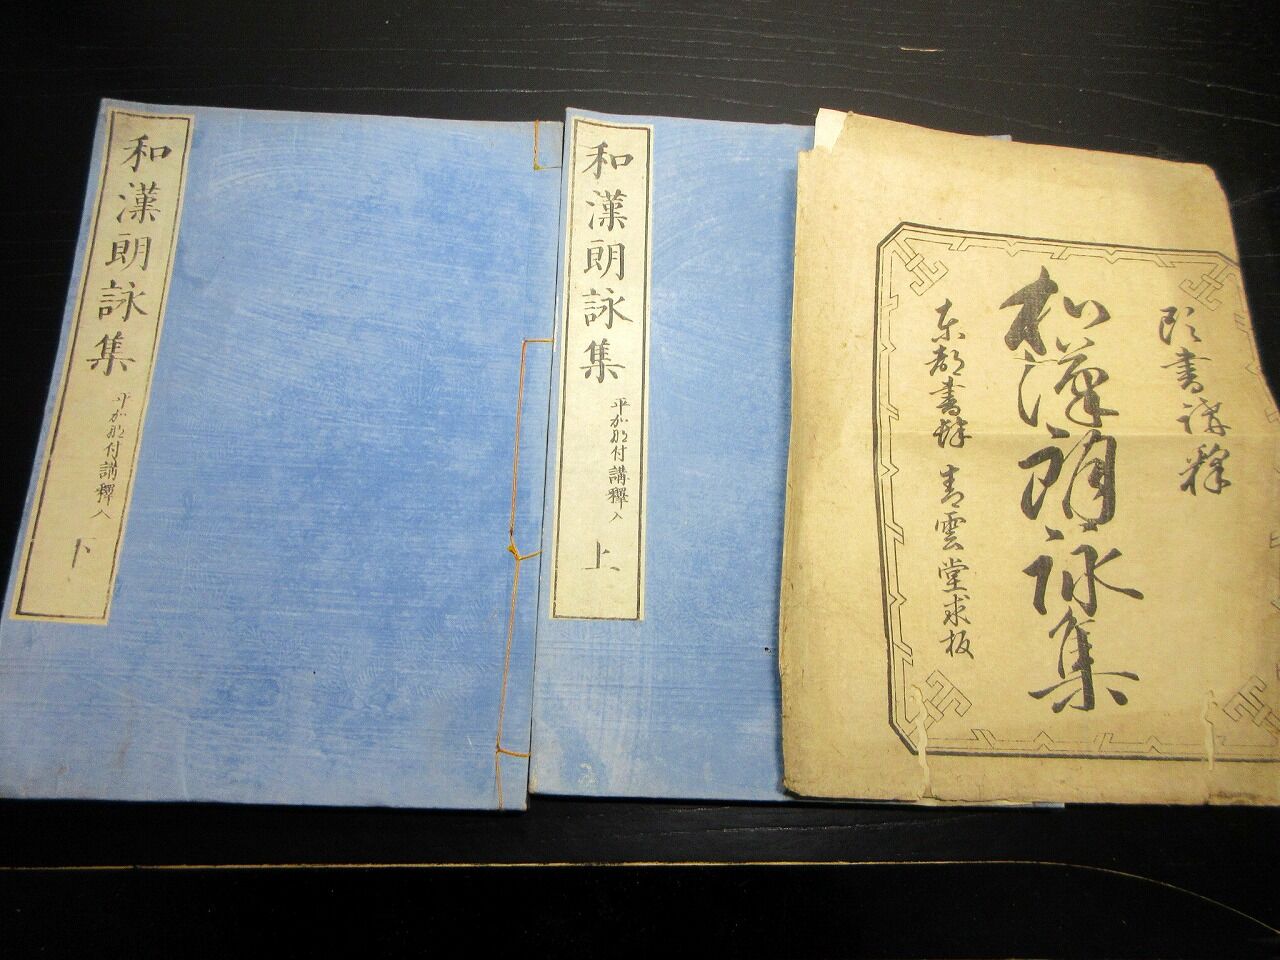 頭書講釋
和漢朗詠集
東都書肆 青雲堂求板
和漢朗詠集
平かな付講釋入
上
和漢朗詠集
平かな付講釋入
下